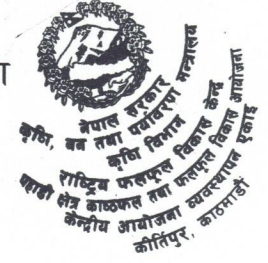 त
नेपाल सरकार
कृषि, वन तथा पर्यावरण मन्त्रालय
कृषि विभाग
राष्ट्रिय फलफूल विकास केन्द्र
पहाडी क्षेत्र काष्ठफल तथा फलफूल विकास आयोजना
केन्द्रीय आयोजना व्यवस्थापन इकाइ
कीर्तिपुर, काठमाडौं